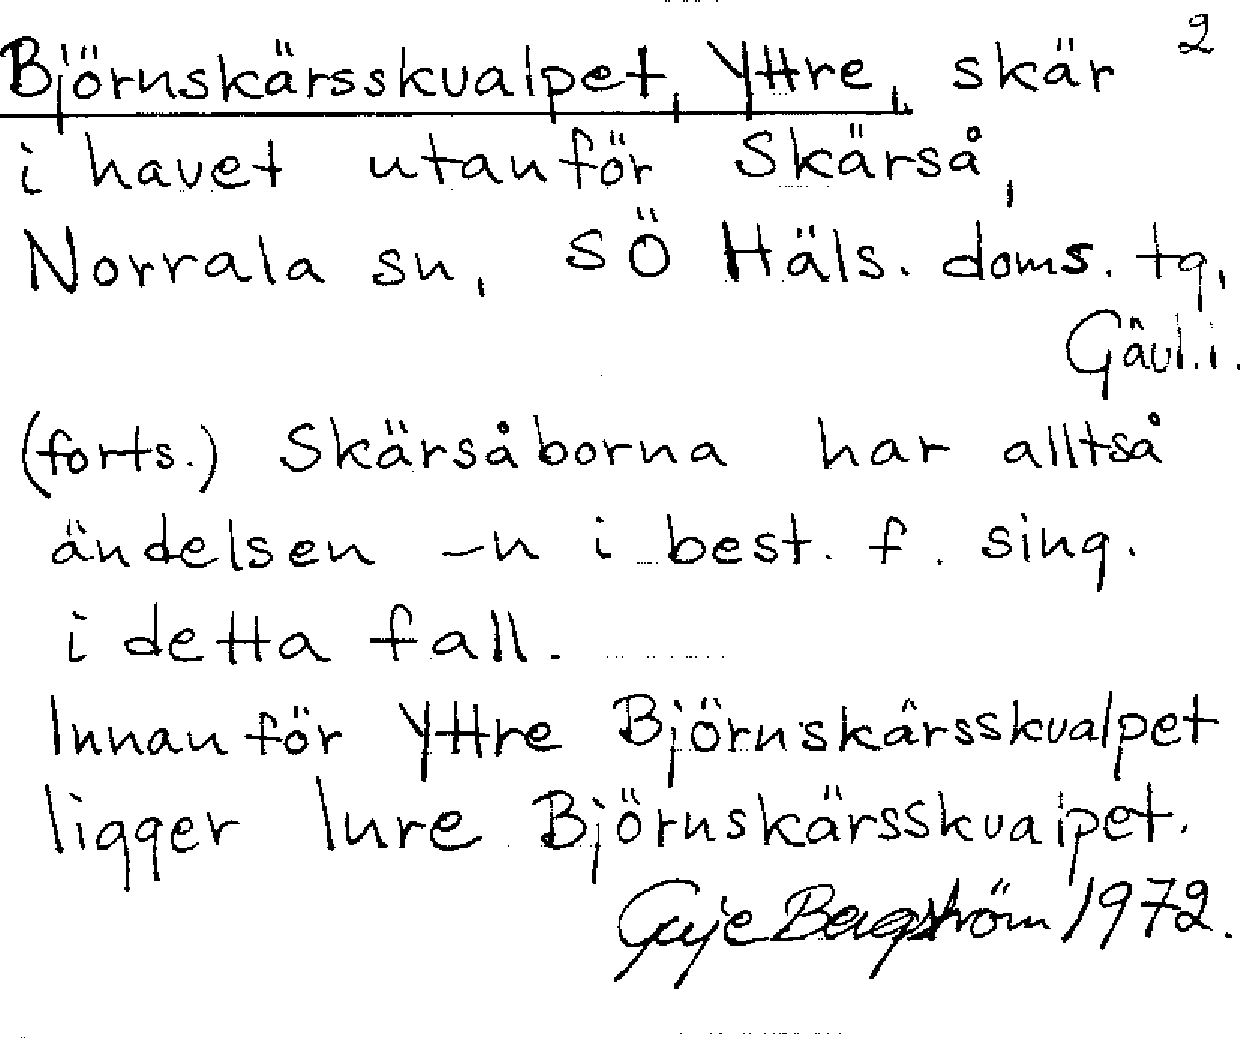 2
Björnskärsskvalpet, Yttre, skär
i havet utanför Skärså,
Norrala sn, SÖ Häls. doms. tg,
Gävl.i.
(forts.) Skärsåborna har alltså
ändelsen -n i best. f. sing.
i detta fall.
Innanför Yttre Björnskärsskvalpet
ligger Inre Björnskärsskvalpet.
Bergström 1972.